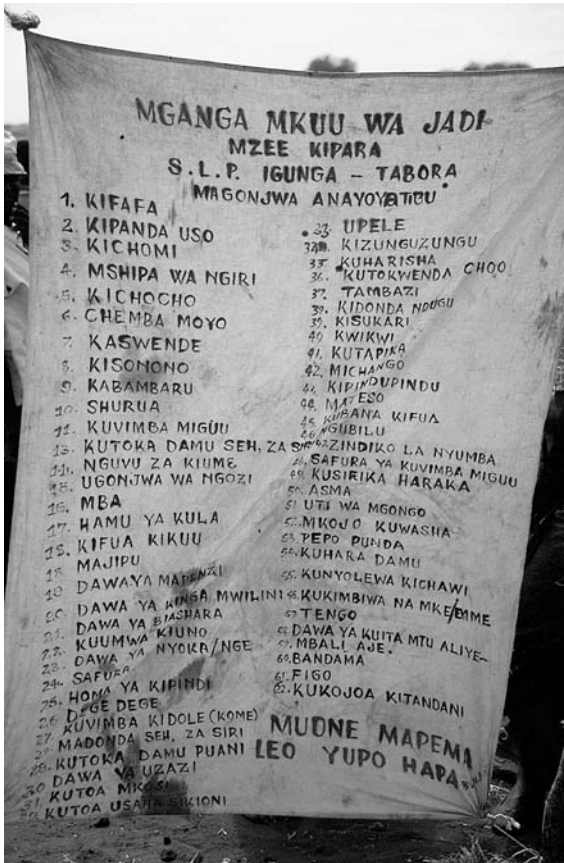 MGANGA MKUU WA JADI
MZEE KIPARA
S.L.P. IGUNGA - TABORA
MAGONJWA ANAYOYATIBU
1. KIFAFA
2. KIPANDA USO
3. KICHOMI
4. MSHIPA WA NGIRI
5. KICHOCHO
6. CHEMBA MOYO
7. KASWENDE
8. KISONONO
9. KABAMBARU
10. SHURUA
11. KUVIMBA MIGUU
13. KUTOKA DAMU SEH, ZA SIRI
14. NGUVU ZA KIUME
15. UGONJWA WA NGOZI
16. MBA
17. HAMU YA KULA
18. KIFUA KIKUU
18. MAJIPU
19. DAWAYA MAPENZI
20. DAWA YA KINGA MWILINI
21. DAWA YA BIASHARA
22. KUUMWA KIUNO
23. DAWA YA NYOKA/NGE
24. SAFURA
25. HOMA YA KIPINDI
26. DEGE DEGE
27. KUVIMBA KIDOLE (KOME)
MADONDA SEH, ZA SIRI
29. KUTOKA DAMU PUANI
30 DAWA YA UZAZI
31 KUTOA MKOSI
KUTOA USAHA SIKIONI
33. UPELE
34. KIZUNGUZUNGU
35. KUHARISHA
36. KUTOKWENDA CHOO
37. TAMBAZI
38. KIDONDA NDUGU
39. KISUKARI
40 KWIKWI
41. KUTAPIKA
42. MICHANGO
KIPINDUPINDU
44. MATESO
45. KUBANA KIFUA
46. NGUBILU
47. ZINDIKO LA NYUMBA
48. SAFURA YA KUVIMBA MIGUU
49. KUSIRIKA HARAKA
50. ASMA
51. UTI WA MGONGO
52. MKOJO KUWASHA
53. PEPO PUNDA
54. KUHARA DAMU
55. KUNYOLEWA KICHAWI
56. KUKIMBIWA NA MKE/MME
57. TENGO
58. DAWA YA KUITA MTU ALIYE-
59. MBALI AJE.
60. BANDAMA
61. FIGO
62. KUKOJOA KITANDANI
MUONE MAPEMA
LEO YUPO HAPA